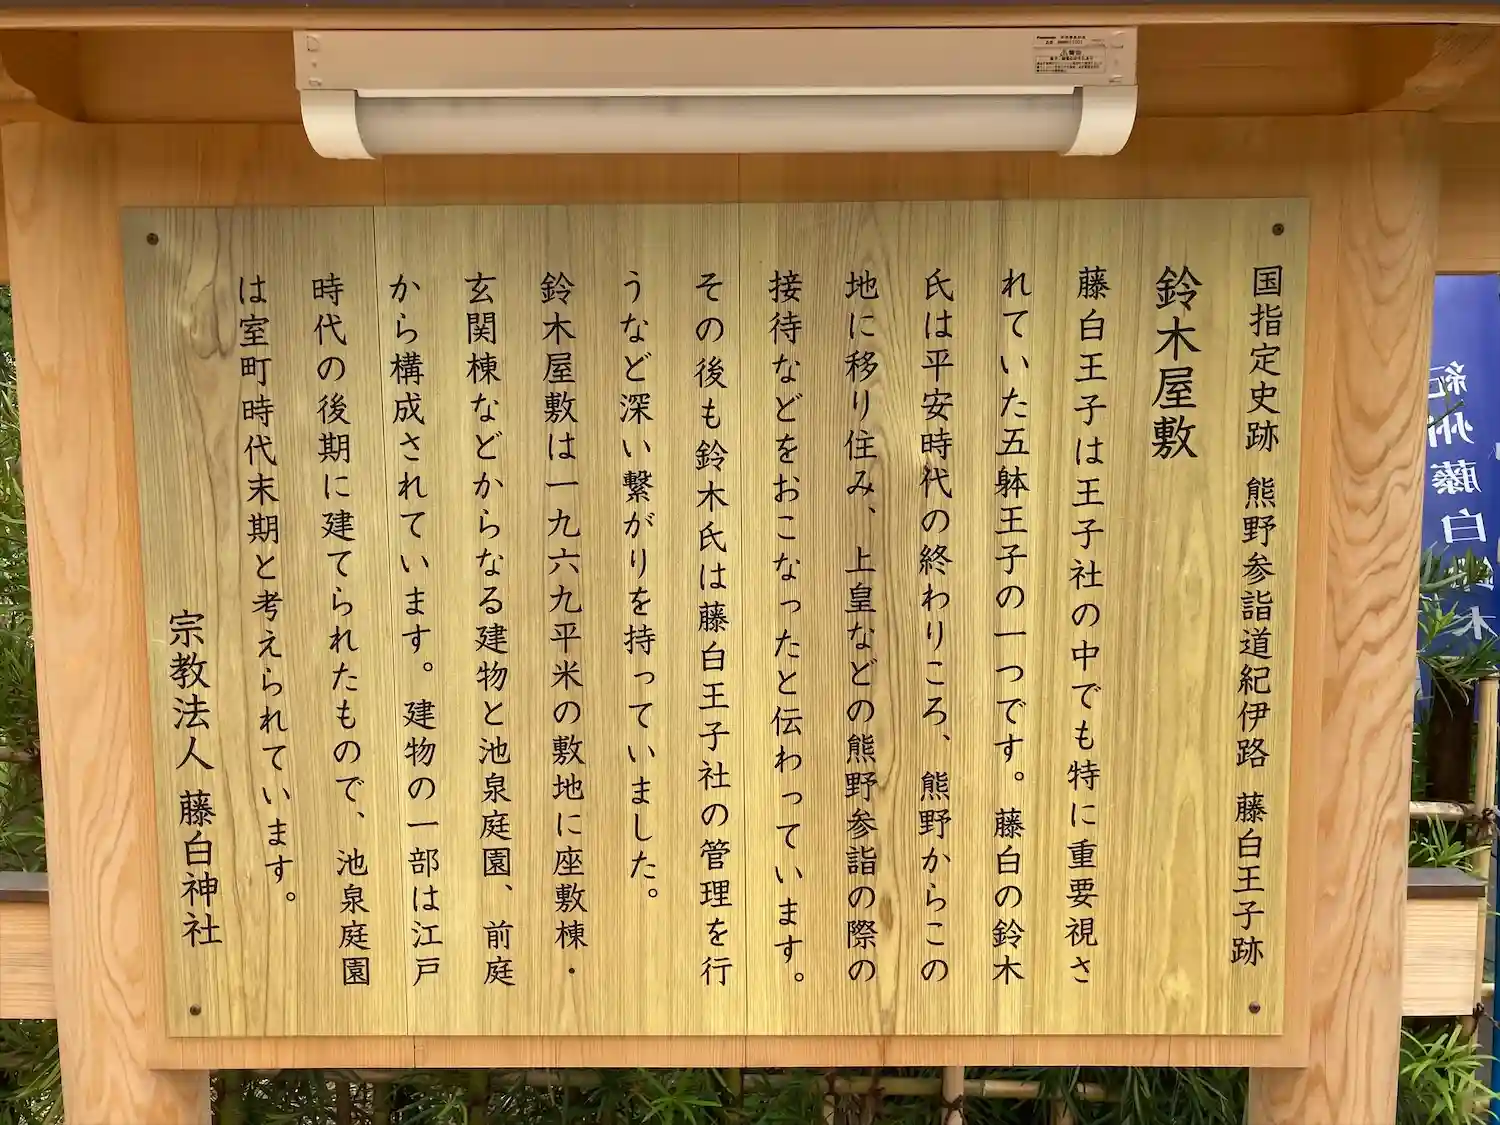 国指定史跡 熊野参詣道紀伊路 藤白王子跡
鈴木屋敷
藤白王子は王子社の中でも特に重要視さ
れていた五躰王子の一つです。藤白の鈴木
氏は平安時代の終わりころ、熊野からこの
地に移り住み、上皇などの熊野参詣の際の
接待などをおこなったと伝わっています。
その後も鈴木氏は藤白王子社の管理を行
うなど深い繋がりを持っていました。
鈴木屋敷は一九六九平米の敷地に座敷棟・
玄関棟などからなる建物と池泉庭園、前庭
から構成されています。建物の一部は江戸
時代の後期に建てられたもので、池泉庭園
は室町時代末期と考えられています。
宗教法人 藤白神社
Panasonic
紀州藤白
木